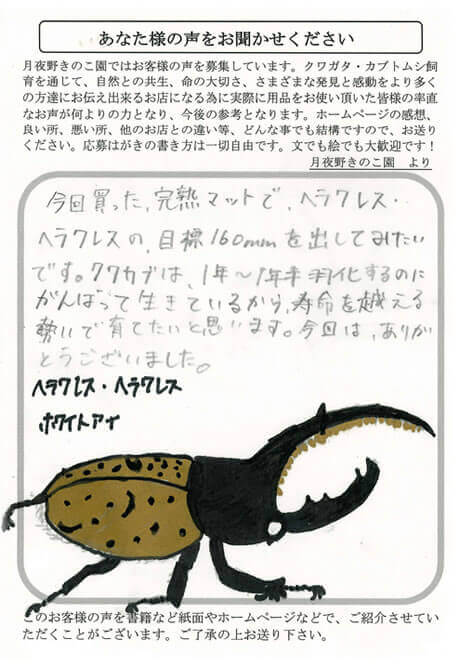 あなた様の声をお聞かせください
月夜野きのこ園ではお客様の声を募集しています。クワガタ・カブトムシ飼
育を通じて、自然との共生、命の大切さ、さまざまな発見と感動をより多く
の方達にお伝え出来るお店になる為に実際に用品をお使い頂いた皆様の率直
なお声が何よりの力となり、今後の参考となります。ホームページの感想、
良い所、悪い所、他のお店との違い等、どんな事でも結構ですので、お送り
ください。応募はがきの書き方は一切自由です。文でも絵でも大歓迎です！
月夜野きのこ園　より
今回買った、完熟マットで、ヘラクレス・
ヘラクレスの、目標160mmを出してみたい
です。クワカブは、1年～1年半羽化するのに
がんばって生きているから、寿命を越える
勢いで育てたいと思います。今回は、ありが
とうございました。
ヘラクレス・ヘラクレス
ホワイトアイ
このお客様の声を書籍など紙面やホームページなどで、ご紹介させてい
ただくことがございます。ご了承の上お送り下さい。